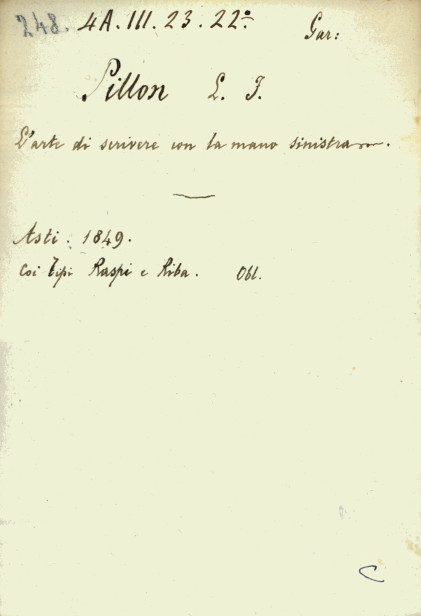 248. 4A. III. 23. 22º Gar:
Pillon L. J.
L'arte di scrivere con la mano sinistra.
Asti. 1849.
Coi Tipi Raspi e Riba. Obl.
C